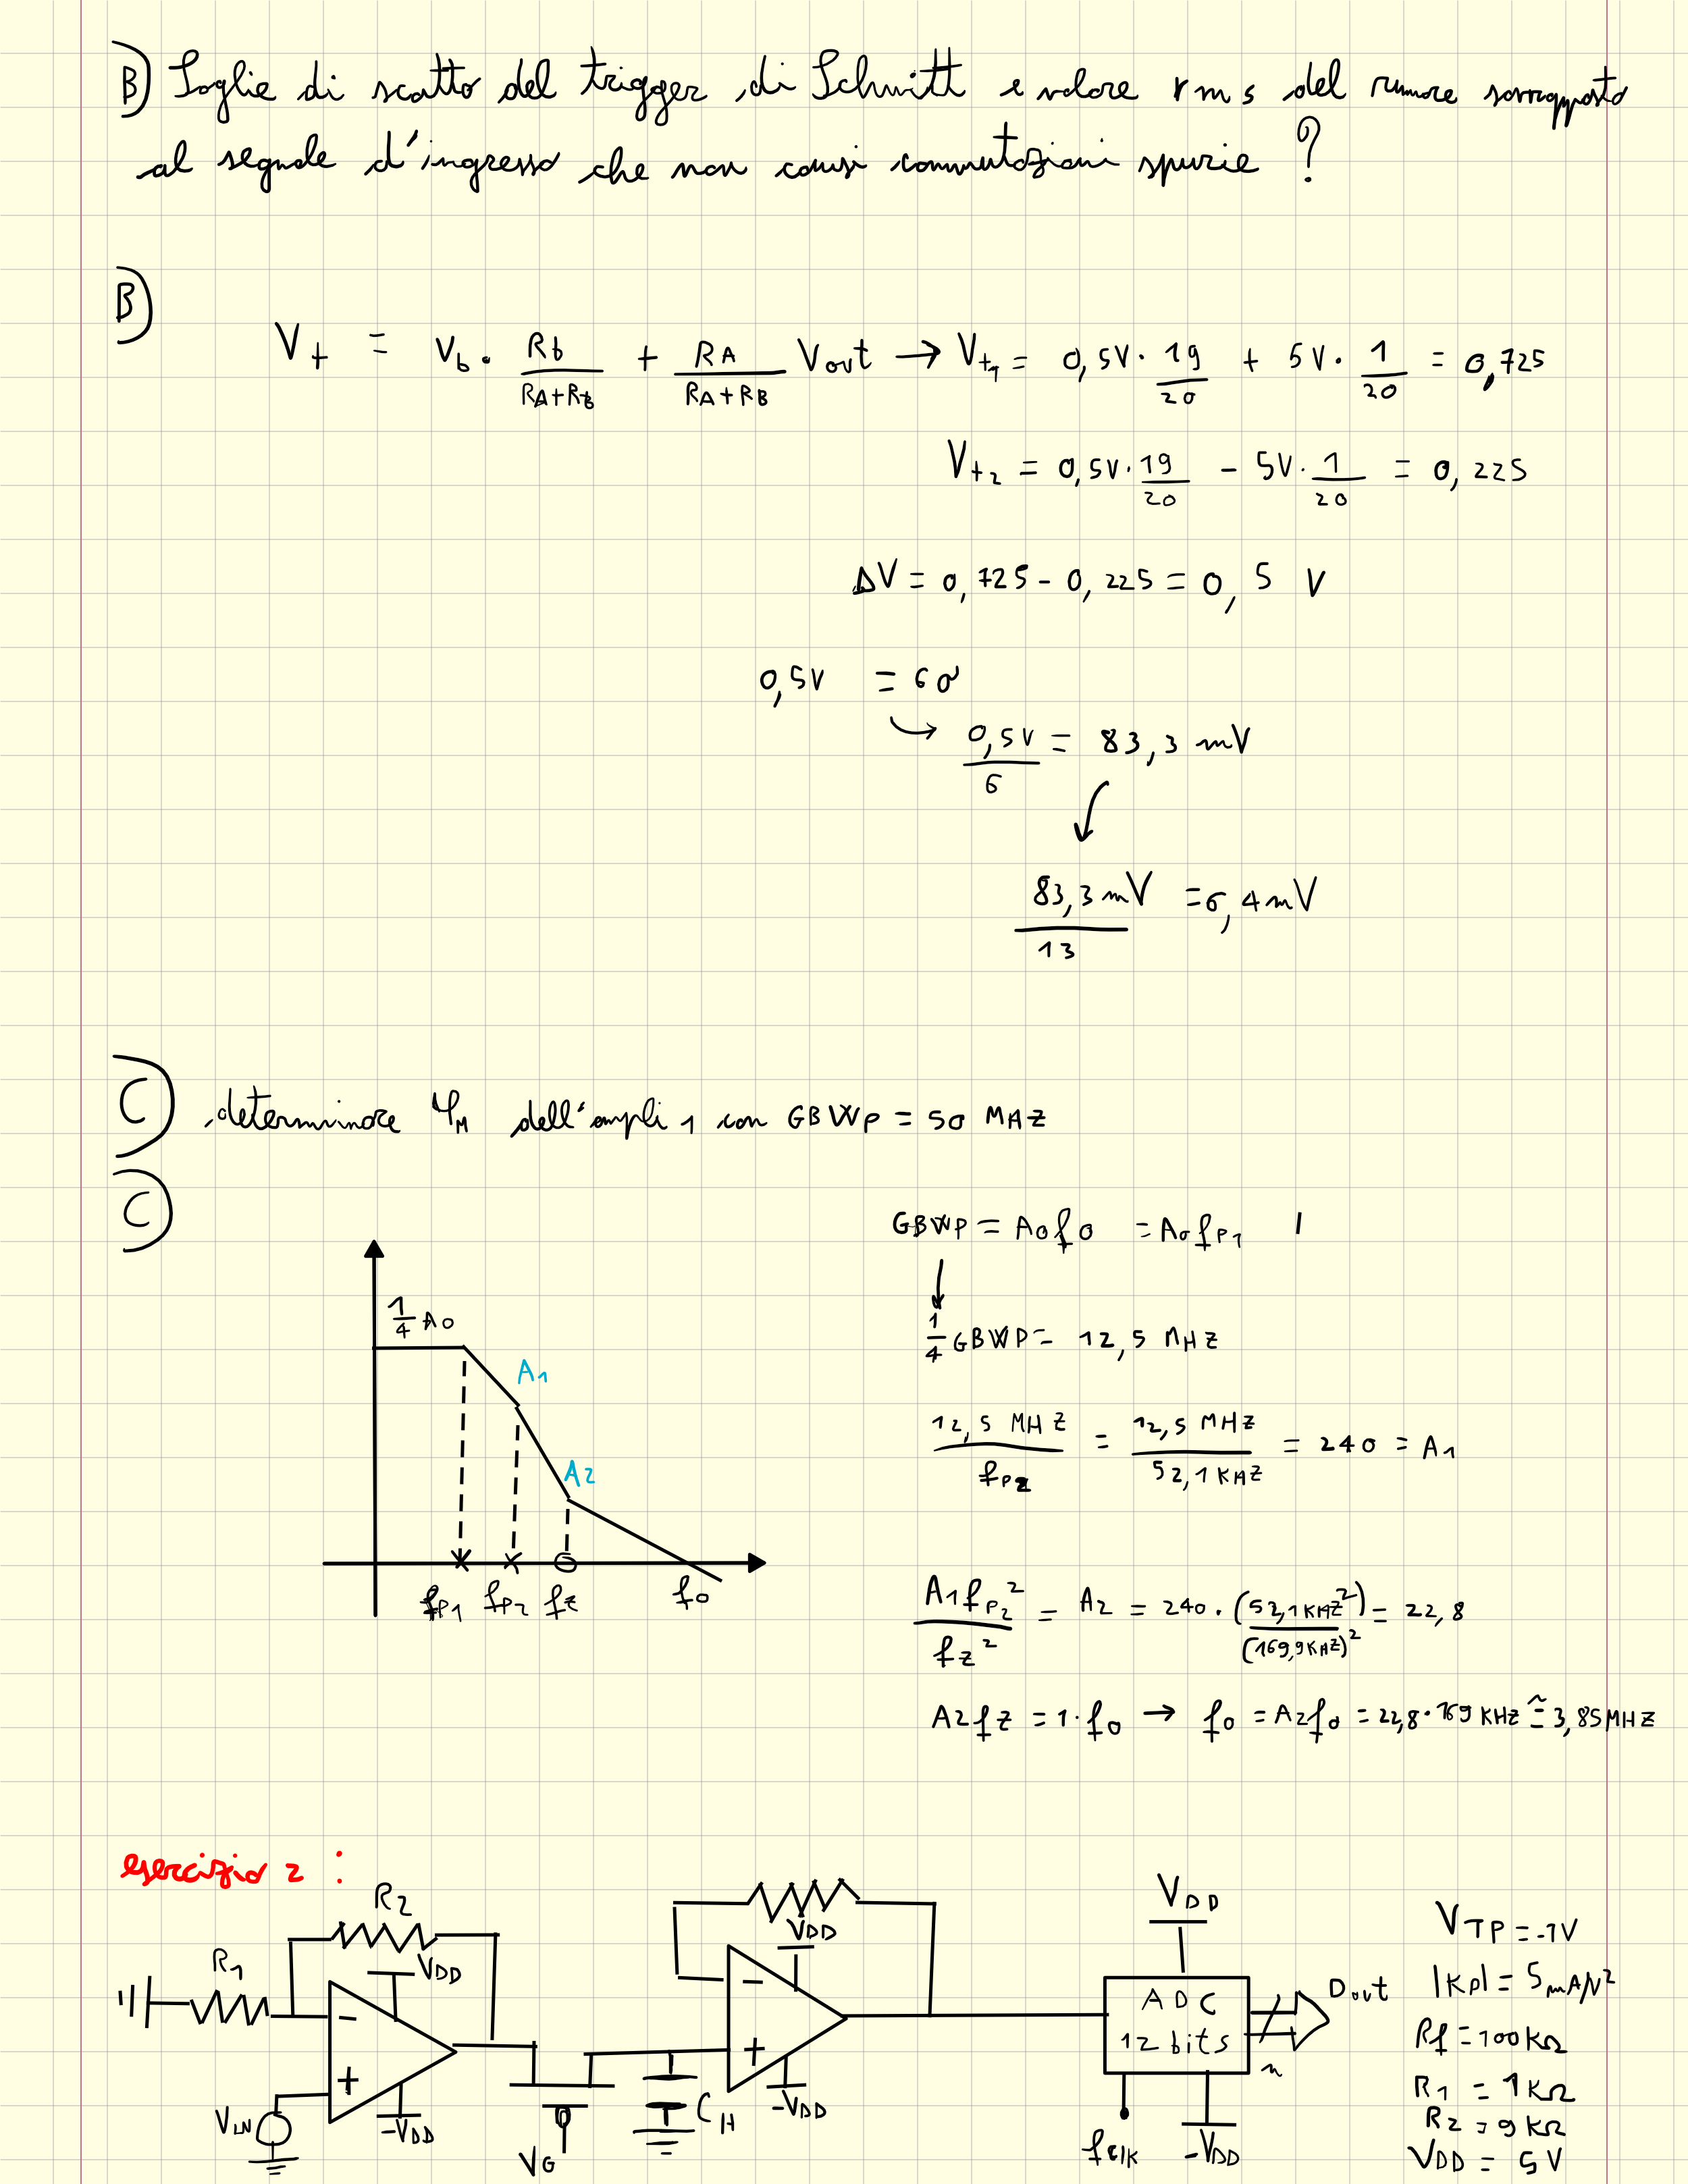 B) Soglie di scatto del trigger di Schmitt e valore rms del rumore sovrapposto
al segnale d'ingresso che non causi commutazioni spurie ?
B)
V+ = Vb · Rb/(RA+Rb) + RA/(RA+RB) Vout → V+1 = 0,5V · 19/20 + 5V · 1/20 = 0,725
V+2 = 0,5V · 19/20 - 5V · 1/20 = 0,225
ΔV = 0,725 - 0,225 = 0,5 V
0,5V = 6σ
0,5V/6 = 83,3 mV
83,3 mV/13 = 6,4 mV
C) determinare φM dell'ampli 1 con GBWP = 50 MHZ
C)
GBWP = A0f0 = A0fP1 |
1/4 A0
1/4 GBWP = 12,5 MHZ
A1
12,5 MHZ/fP2 = 12,5 MHZ/52,1 KHZ = 240 = A1
A2
fP1 fP2 fz f0
A1fP2²/fz² = A2 = 240 · (52,1 KHZ²)/(169,9 KHZ)² = 22,8
A2fz = 1·f0 → f0 = A2f0 = 22,8·169 KHZ ≅ 3,85 MHZ
esercizio 2 :
R2
R1
VDD
-VDD
VIN
VG
CH
VDD
-VDD
VDD
ADC
12 bits
Dout
n
fclk
-VDD
VTP = -1V
|KP| = 5mA/V²
Rf = 100KΩ
R1 = 1KΩ
R2 = 9KΩ
VDD = 5V